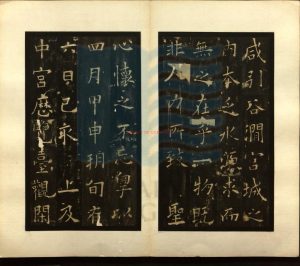 咸引谷澗宮城之
內本乏水源求而
無之在乎一物既
非人力所致聖
心懷之不忘粵以
四月甲申朔旬有
六日己亥上及
中宮歷覽臺觀閑